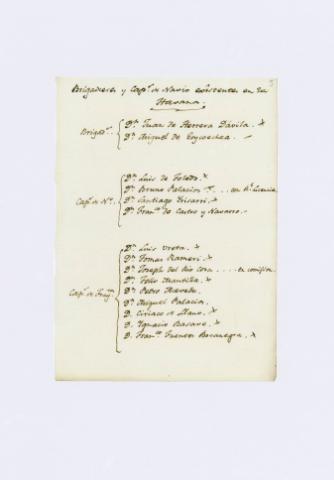 Brigadieres y Cap.s de Navio existentes en la
Havana.
Brigad.s
D.n Juan de Herrera Dávila. x
D.n Miguel de Goycoechea
Cap.s de N.o
D.n Luis de Toledo. x
D.n Bruno Palacios .... con R.l Licencia
D.n Santiago Irisarri. x
D.n Fran.co de Castro y Navarro.
Cap.s de Frag.ta
D.n Luis x
D.n Tomas Rameri. x
D.n Joseph del Rio Cosa .... en comision
D.n Felix Mantilla. x
D.n Pedro
D.n Miguel Palacios.
D. Ciriaco de Llano. x
D. Ignacio x
D. Fran.co Fuentes Bocanegra. x